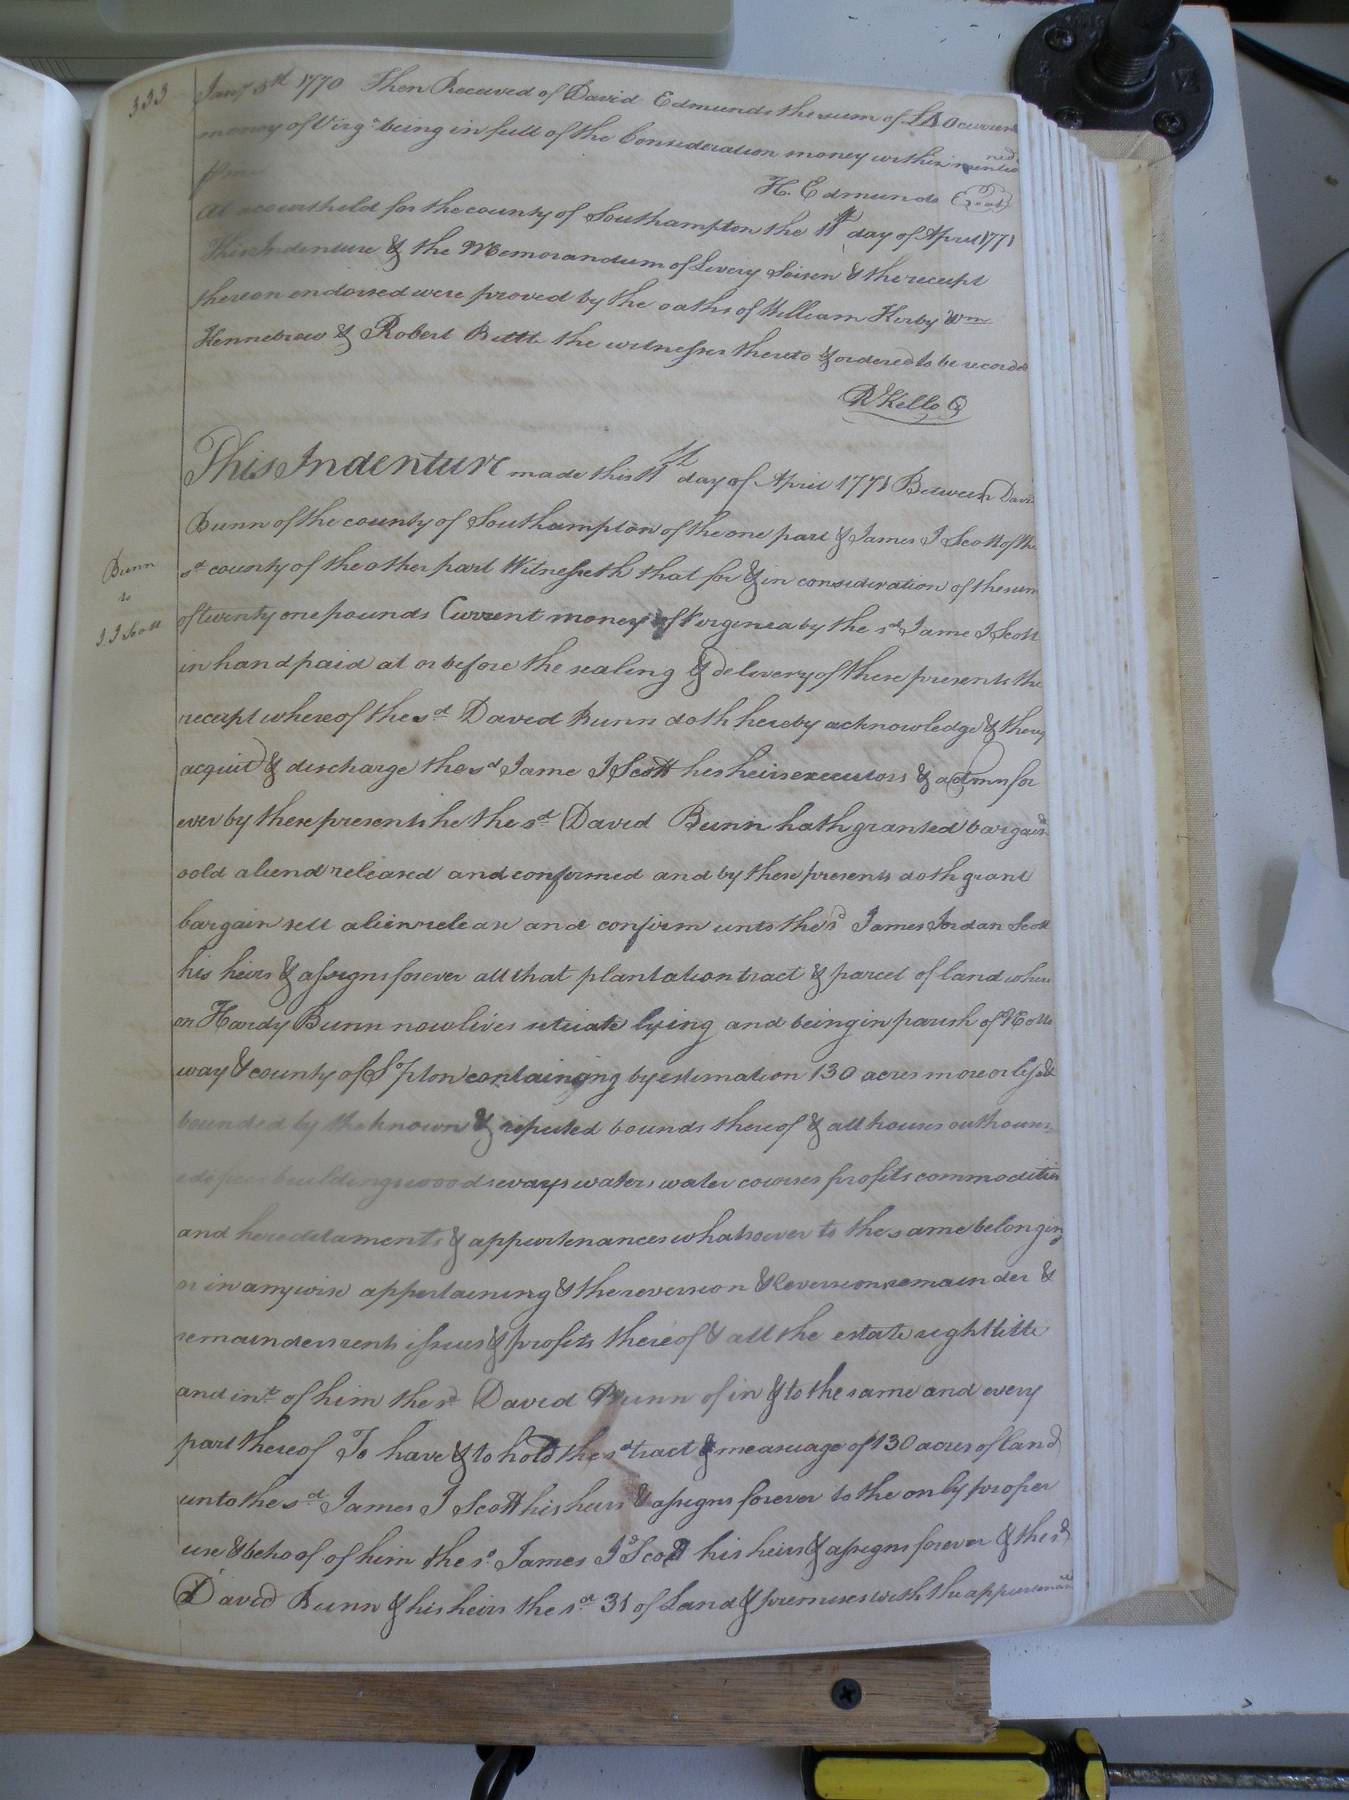 333
Jany 5th 1770 Then Received of David Edmunds the sum of current
money of Virga being in full of the Consideration money within mentioned
H. Edmunds (Seal)
At a court held for the county of Southampton the 11th day of April 1771
This Indenture & the Memorandum of Livery Seisen & the receipt
thereon endorsed were proved by the oaths of William Kerby Wm
Hennebrew & Robert Butt the witnesses thereto & ordered to be recorded
R Kello C
This Indenture made this 11th day of April 1771 Between David
Bunn of the county of Southampton of the one part & James J Scott of the
Bunn
to
J J Scott
sd county of the other part Witnesseth that for & in consideration of the sum
of twenty one pounds Current money of Verginea by the sd Jame J Scott
in hand paid at or before the sealing & delivery of these presents the
receipt whereof the sd David Bunn doth hereby acknowledge &
acquit & discharge the sd Jame J Scott his heirs executors & admn for
ever by these presents he the sd David Bunn hath granted bargaind
sold aliend released and confirmed and by these presents doth grant
bargain sell alien release and confirm unto the sd James Jordan Scott
his heirs & assigns forever all that plantation tract & parcel of land where
on Hardy Bunn now lives situate lying and being in parish of Notto
way & county of Sopton containging by estimation 130 acres more or less &
bounded by the known & reputed bounds thereof & all houses outhouses
edifices buildings woods ways waters water courses profits commodities
and hereditaments & appurtenances whatsoever to the same belonging
or in any wise appertaining & the reversion & Reversions remainder &
remainders rents issues & profits thereof & all the estate right title
and int of him the sd David Bunn of in & to the same and every
part thereof To have & to hold the sd tract & measuage of 130 acres of land
unto the sd James J Scott his heirs & assigns forever to the only proper
use & behoof of him the sd James Jd Scott his heirs & assigns forever & the sd
David Bunn & his heirs the sd 31 of Land & premises with the